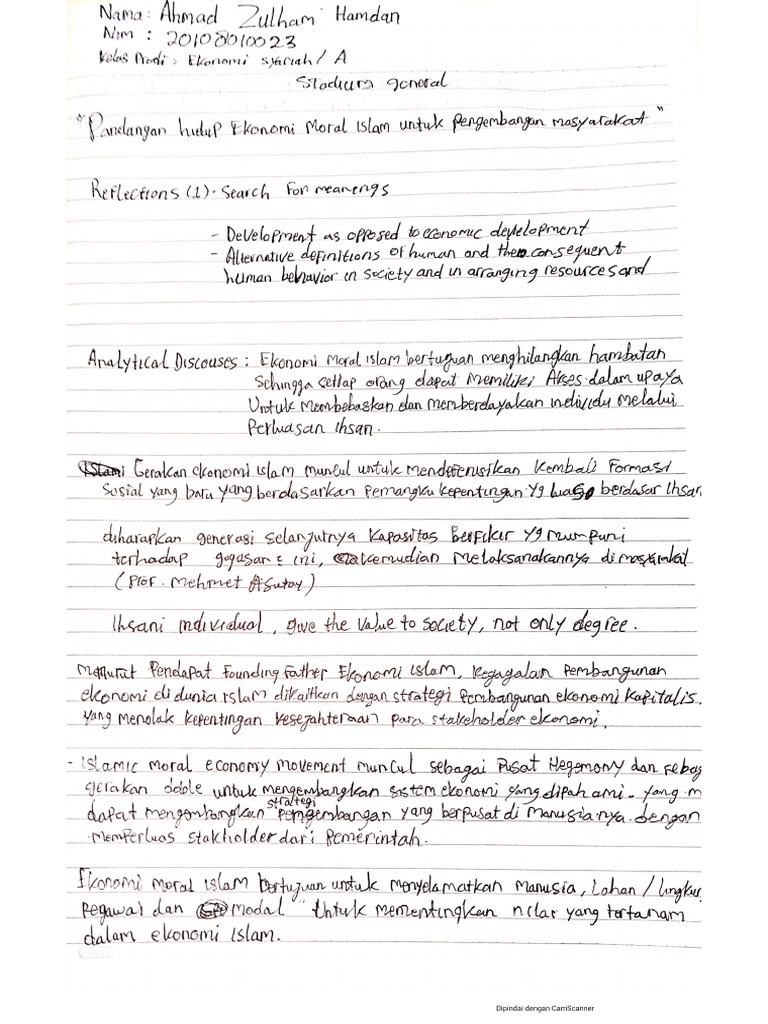 Nama: Ahmad Zulham Hamdan
Nim : 20108010023
Kelas Prodi : Ekonomi Syariah / A
Stadium general
"Pandangan hidup Ekonomi Moral Islam untuk pengembangan masyarakat"
Reflections (1) - Search For meanengs
- Development as opposed to economic development
- Alternative definitions of human and the consequent
human behavior in society and in arranging resources and
Analytical Discouses : Ekonomi Moral Islam bertuguan menghilangkan hambatan
Sehingga setiap orang dapat memiliki Akses dalam upaya
Untuk Membebaskan dan memberdayakan individu melalui
Perluasan ihsan.
Gerakan ekonomi islam muncul untuk mendefenisikan Kembali Formasi
Sosial yang baru yang berdasarkan Pemangku kepentingan Yg luas berdasar Ihsan
diharapkan generasi selanjutnya Kapasitas Berfikir Yg mumpuni
terhadap gagasan ini, kemudian Melaksanakannya di masyarakat
(Prof. Mehmet Asutay)
Ihsani individual, give the value to society, not only degree.
Menurut Pendapat Founding Father Ekonomi Islam, Kegagalan Pembangunan
ekonomi di dunia Islam dikaitkan dengan strategi Pembangunan ekonomi Kapitalis.
yang menolak kepentingan kesejahteraan para stakeholder ekonomi.
- Islamic moral economy movement muncul sebagai Pusat Hegemony dan
gerakan doble untuk mengembangkan sistem ekonomi yang dipahami - yang m
dapat mengembangkan strategi pengembangan yang berpusat di Manusianya. dengan
memperluas stakholder dari Pemerintah.
Ekonomi Moral Islam Bertujuan untuk Menyelamatkan Manusia, Lahan / lingkun
Pegawai dan modal Untuk mementingkan nilai yang tertanam
dalam ekonomi Islam.
Dipindai dengan CamScanner